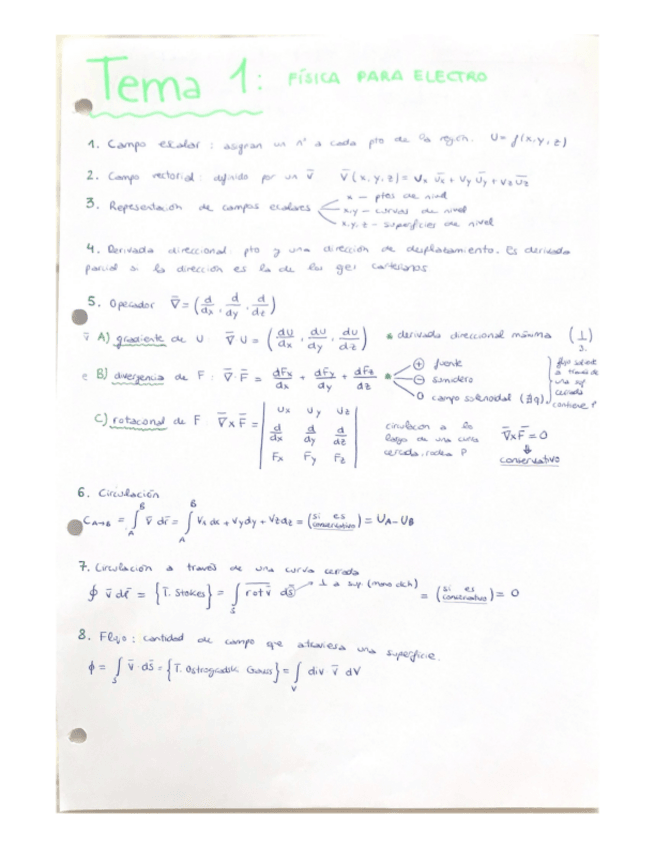 Tema 1: FÍSICA PARA ELECTRO
1. Campo escalar : asignan un nº a cada pto de la región. U = f(x,y,z)
2. Campo vectorial : definido por un v̄ V̄(x,y,z) = Vx ūx + Vy ūy + Vz ūz
3. Representación de campos escalares
x – ptos de nivel
x,y – curvas de nivel
x,y,z – superficies de nivel
4. Derivada direccional: pto y una dirección de desplatamiento. Es derivada
parcial si la dirección es la de los ejes cartesianos
5. Operador ∇̄ = (d/dx, d/dy, d/dz)
A) gradiente de U : ∇̄U = (dU/dx, dU/dy, dU/dz) • derivada direccional máxima (⊥)
B) divergencia de F : ∇̄·F̄ = dFx/dx + dFy/dy + dFz/dz
⊕ fuente
⊖ sumidero
0 campo solenoidal (∄q)
a través de
una sup
cerrada
contiene P
C) rotacional de F : ∇̄×F̄ = | Ux Uy Uz |
| d/dx d/dy d/dz |
| Fx Fy Fz |
circulación a lo
largo de una curva
cerrada, rodea P
∇̄×F̄ = 0
⇓
conservativo
6. Circulación
C A→B = ∫_A^B v̄ dr̄ = ∫_A^B Vx dx + Vy dy + Vz dz = (si es conservativo) = UA – UB
7. Circulación a través de una curva cerrada
∮ v̄ dr̄ = {T. Stokes} = ∫_S rot v̄ ds̄ → ⊥ a sup (mano dch) = (si es conservativo) = 0
8. Flujo : cantidad de campo que atraviesa una superficie.
ϕ = ∫_S v̄ · ds̄ = {T. Ostrogadsk. Gauss} = ∫_V div v̄ dV